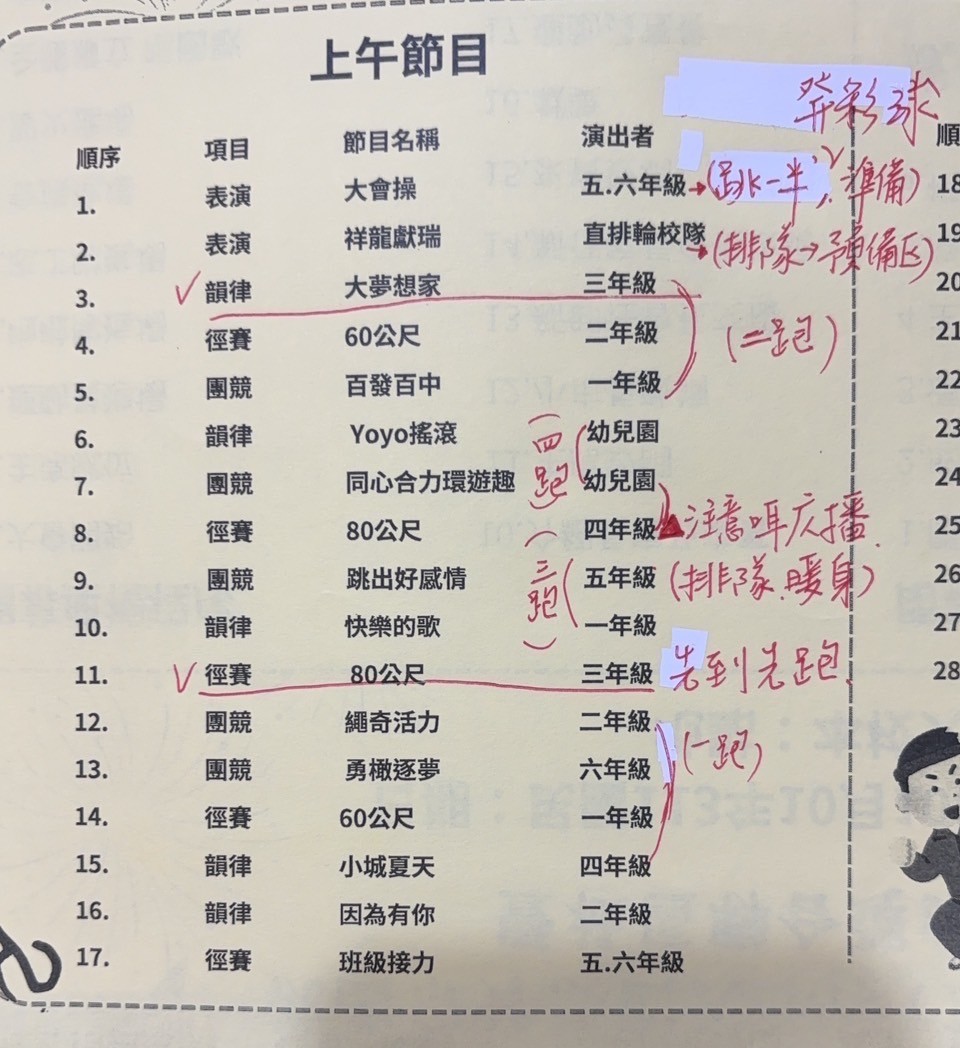 上午節目
發彩球
順序 項目 節目名稱 演出者 順
1. 表演 大會操 五.六年級→(跳一半,準備) 18
2. 表演 祥龍獻瑞 直排輪校隊→(排隊→預備區) 19
✓ 3. 韻律 大夢想家 三年級 20
4. 徑賽 60公尺 二年級 (二跑) 21
5. 團競 百發百中 一年級 22
6. 韻律 Yoyo搖滾 (四跑) 幼兒園 23
7. 團競 同心合力環遊趣 幼兒園 24
8. 徑賽 80公尺 四年級 ▲注意聽広播 25
9. 團競 跳出好感情 (三跑) 五年級 (排隊.暖身) 26
10. 韻律 快樂的歌 一年級 27
✓ 11. 徑賽 80公尺 三年級 先到先跑. 28
12. 團競 繩奇活力 二年級 (一跑)
13. 團競 勇橄逐夢 六年級
14. 徑賽 60公尺 一年級
15. 韻律 小城夏天 四年級
16. 韻律 因為有你 二年級
17. 徑賽 班級接力 五.六年級